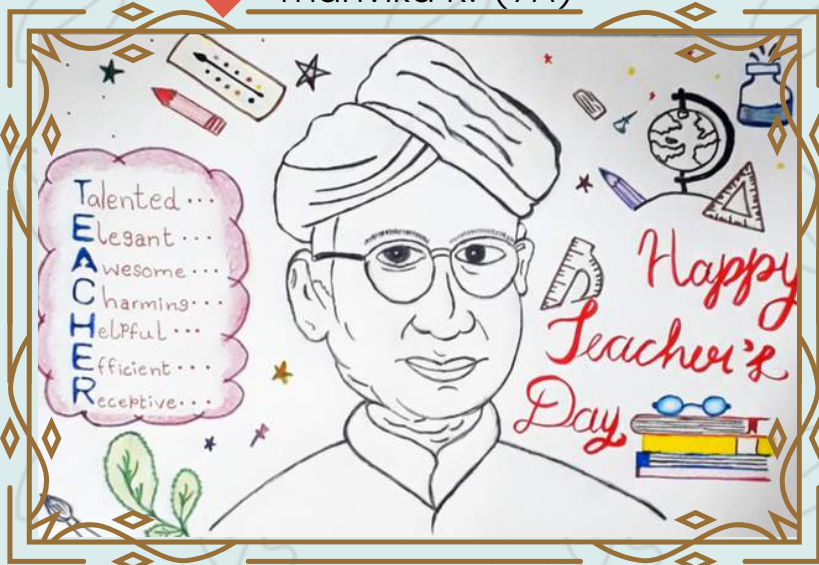 (7A)
Talented...
Elegant...
Awesome...
Charming...
Helpful...
Efficient...
Receptive...
Happy
Teacher's
Day